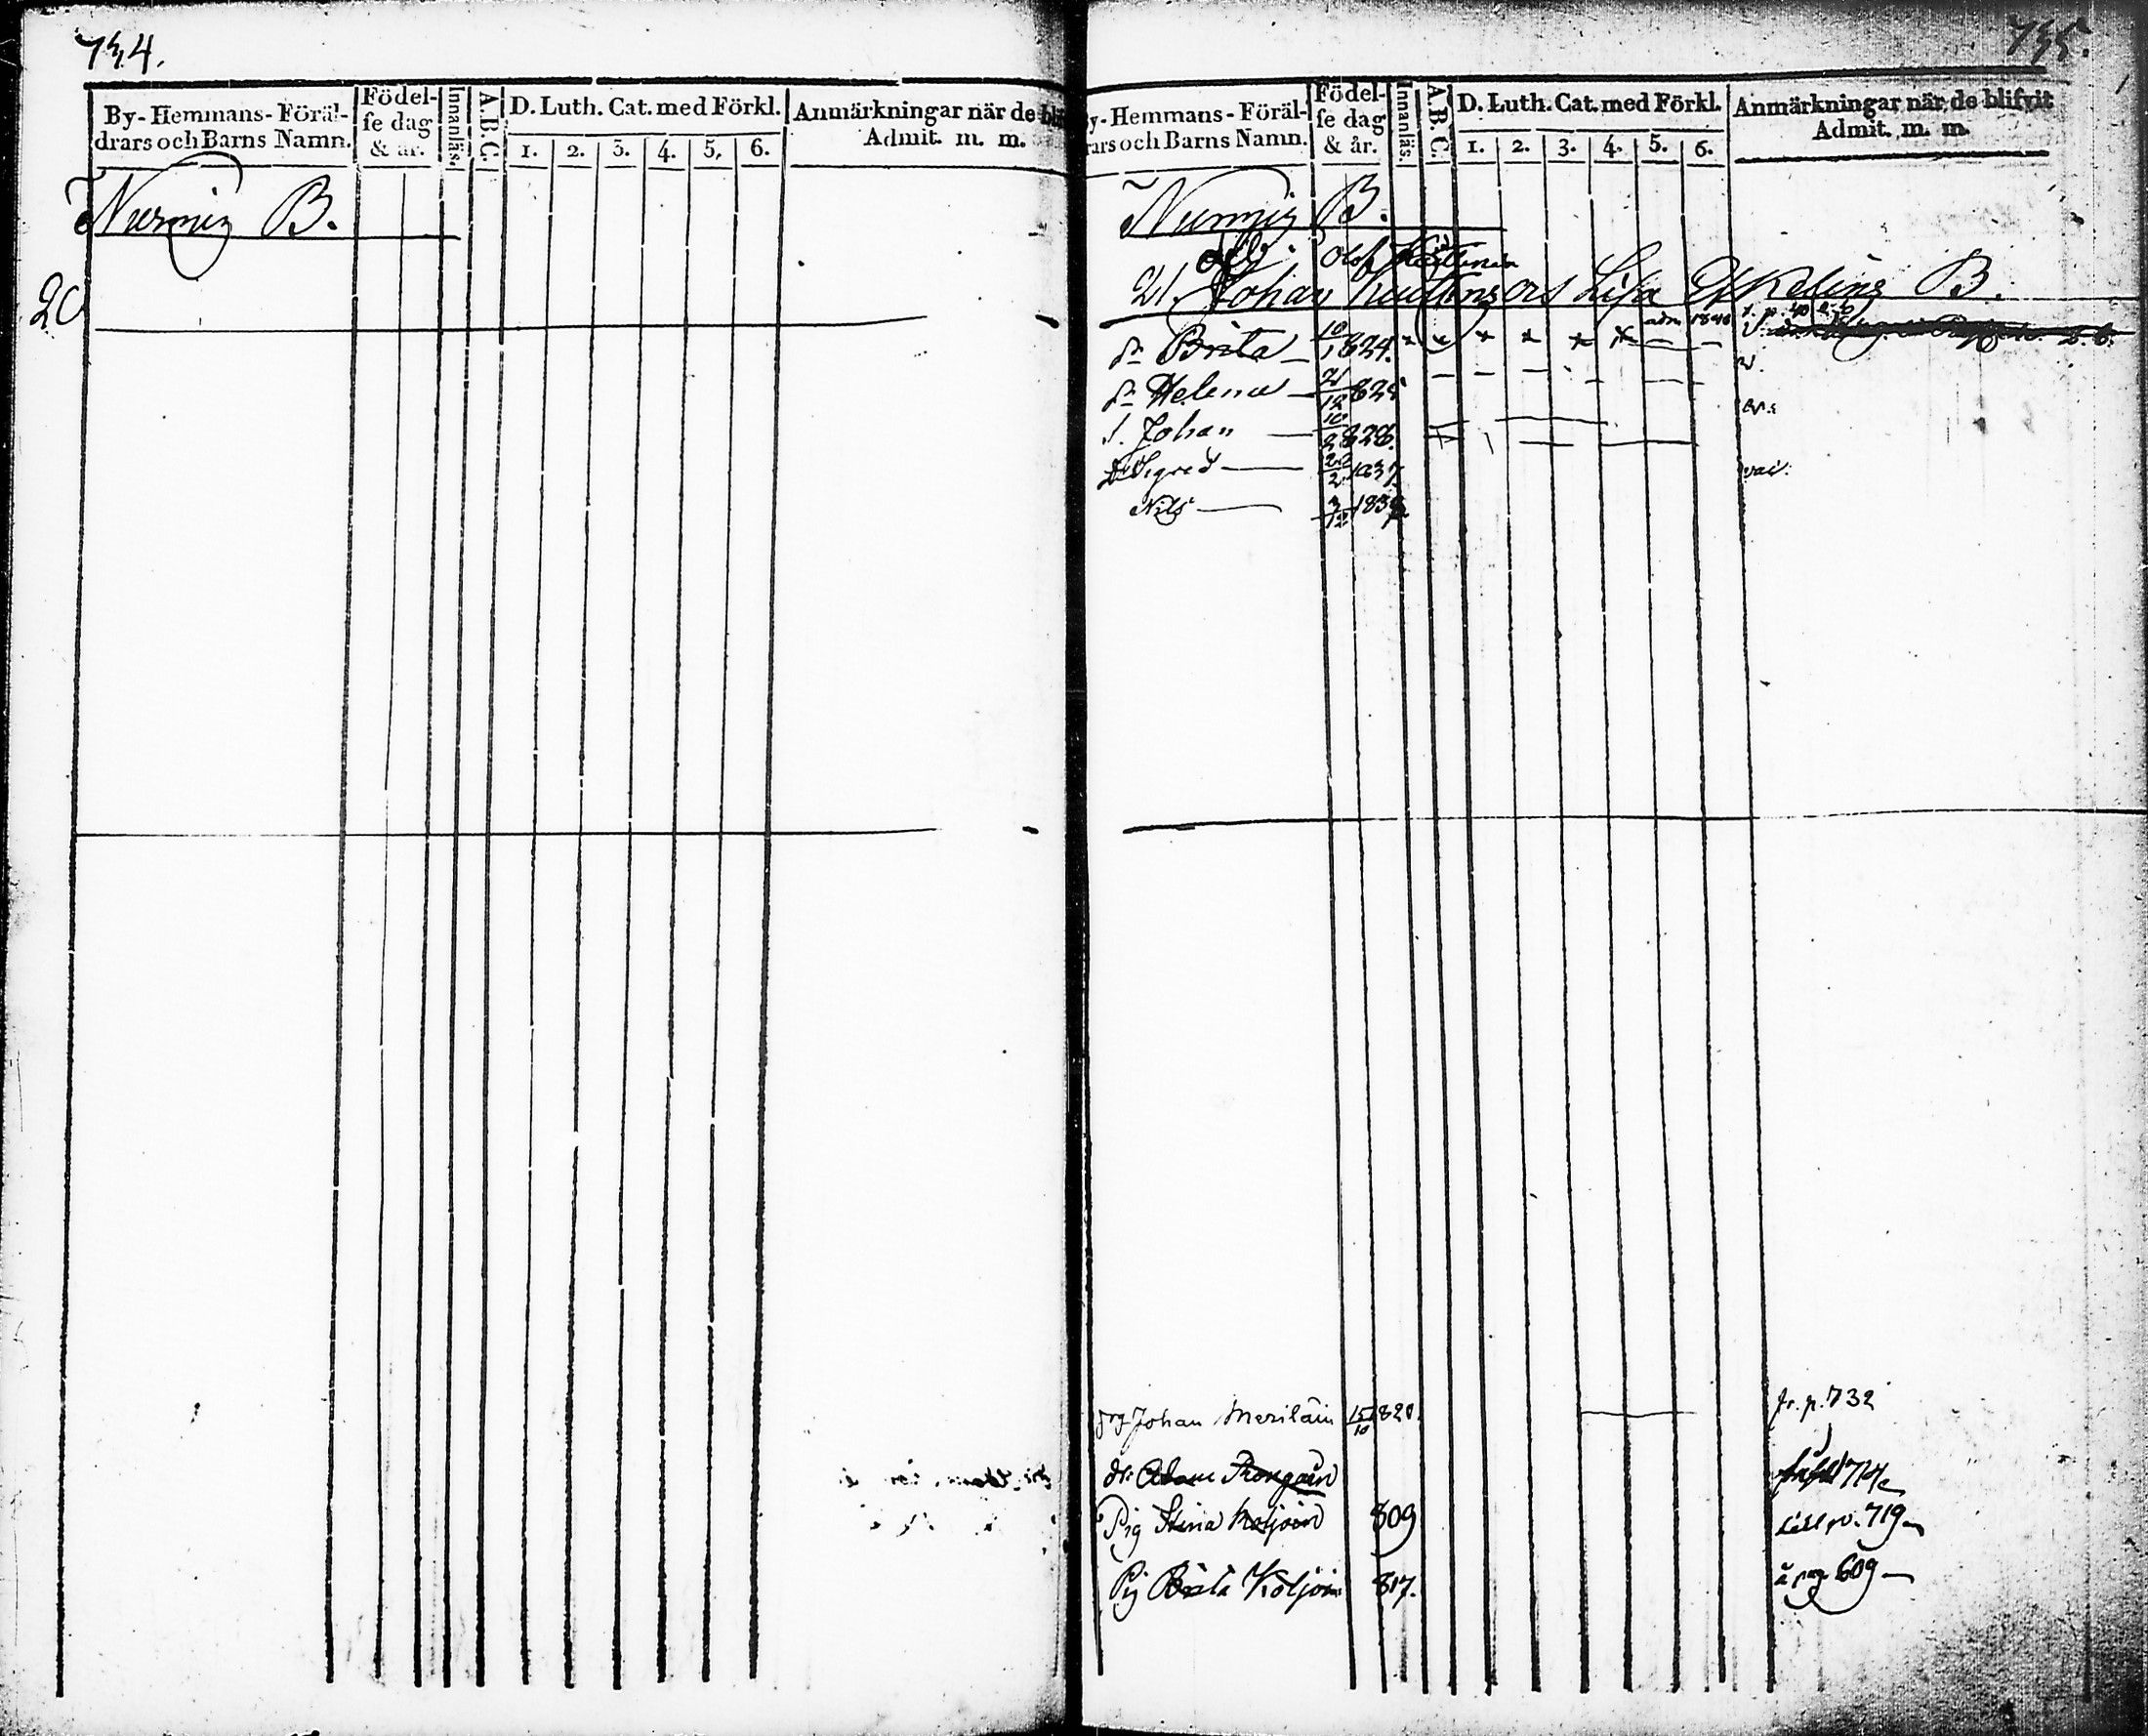 734.
By-Hemmans-Föräl-
drars och Barns Namn.
Födel-
se dag
& år.
Innanläs.
A.B.C.
D. Luth. Cat. med Förkl.
1. 2. 3. 4. 5. 6.
Anmärkningar när de bli
Admit. m. m.
Nurmis B.
20
735.
y-Hemmans-Föräl-
rars och Barns Namn.
Födel-
se dag
& år.
Innanläs.
A.B.C.
D. Luth. Cat. med Förkl.
1. 2. 3. 4. 5. 6.
Anmärkningar när de blifvit
Admit. m. m.
Nurmis B.
Olof
21. Johan Lisa B.
adm 1840
Dr Brita 10/1 824.
Dr Helena 21/12 825
S. Johan 10/2 828.
Dr Sigred 22/2 1837.
Nils 3/12 1838
Johan Meriläin 15/10 820. fr. p. 732
Dr Adam
Pig Stina Koljoin 809 till p. 719
Pig Brita Koljoin 817. å pag 609